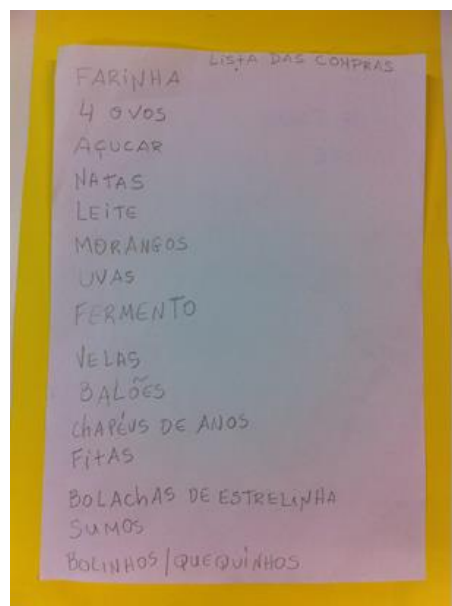 LISTA DAS COMPRAS
FARINHA
4 OVOS
AÇUCAR
NATAS
LEITE
MORANGOS
UVAS
FERMENTO
VELAS
BALÕES
CHAPÉUS DE ANOS
FITAS
BOLACHAS DE ESTRELINHA
SUMOS
BOLINHOS/QUEQUINHOS